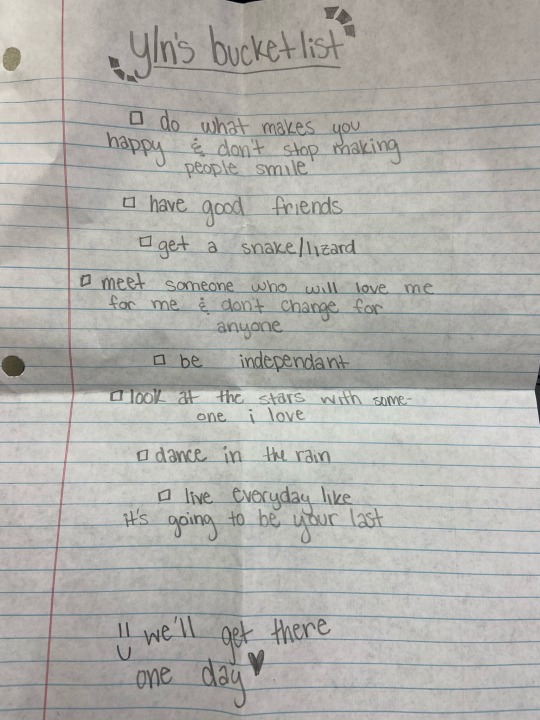 y/n's bucketlist
□ do what makes you
happy & don't stop making
people smile
□ have good friends
□ get a snake/lizard
□ meet someone who will love me
for me & don't change for
anyone
□ be independant
□ look at the stars with some-
one i love
□ dance in the rain
□ live everyday like
it's going to be your last
we'll get there
one day ♥